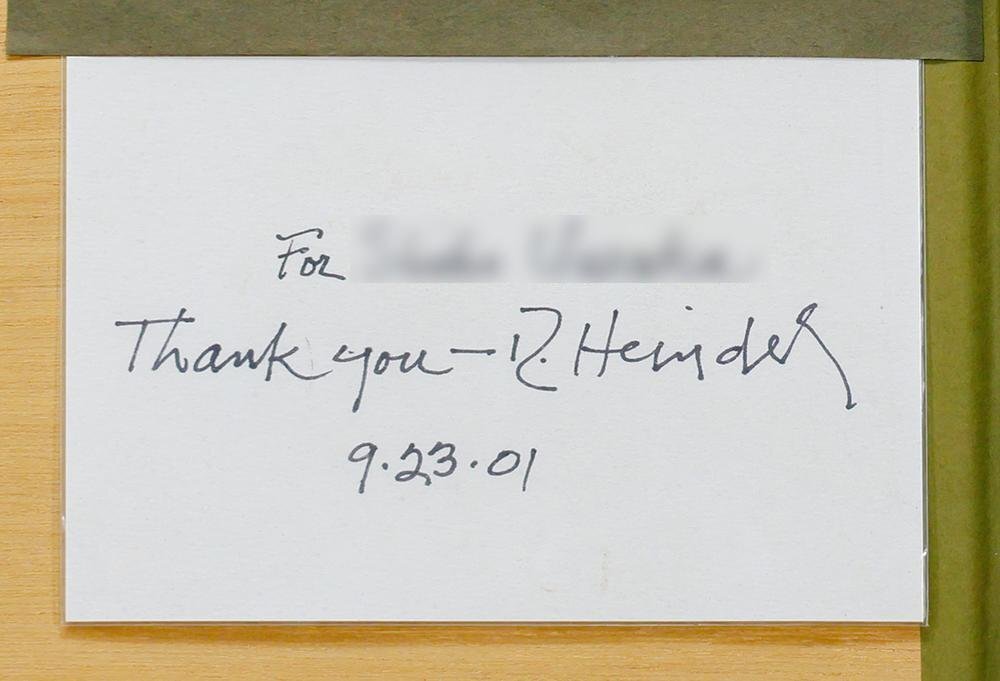 For
Thank you — R. Heindel
9.23.01